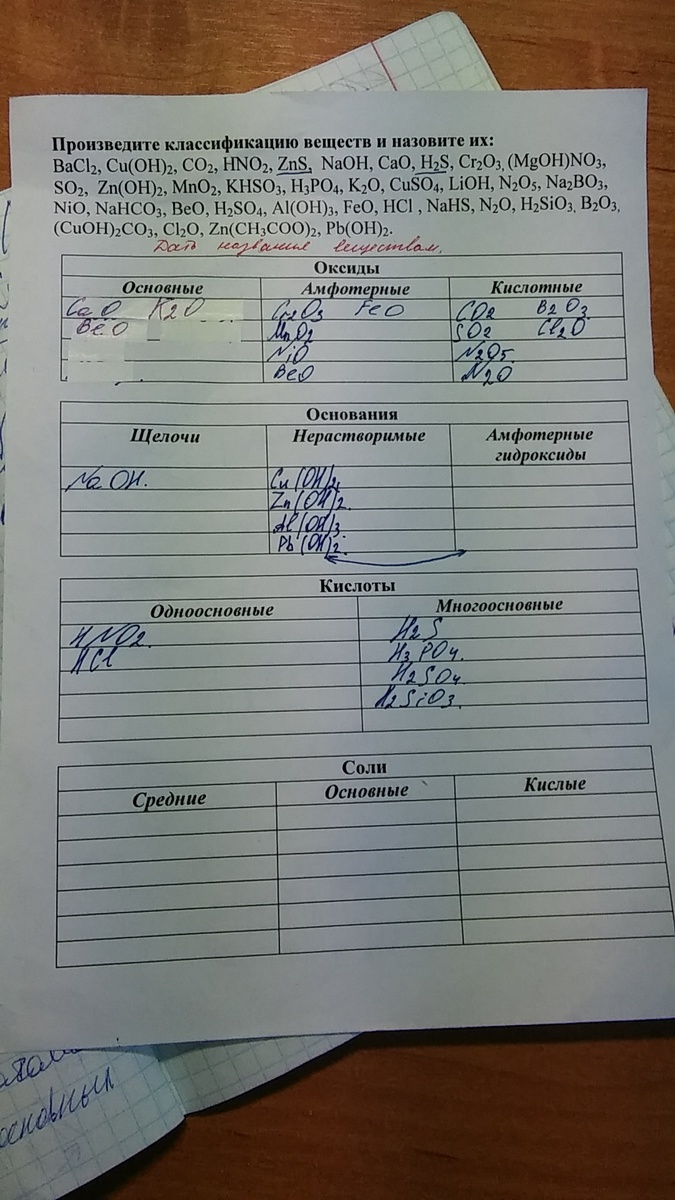 Произведите классификацию веществ и назовите их:
BaCl₂, Cu(OH)₂, CO₂, HNO₂, ZnS, NaOH, CaO, H₂S, Cr₂O₃, (MgOH)NO₃,
SO₂, Zn(OH)₂, MnO₂, KHSO₃, H₃PO₄, K₂O, CuSO₄, LiOH, N₂O₅, Na₂BO₃,
NiO, NaHCO₃, BeO, H₂SO₄, Al(OH)₃, FeO, HCl , NaHS, N₂O, H₂SiO₃, B₂O₃,
(CuOH)₂CO₃, Cl₂O, Zn(CH₃COO)₂, Pb(OH)₂.
Дать названия веществам.
Оксиды
Основные Амфотерные Кислотные
CaO K2O Cr2O3 FeO CO2 B2O3
BeO MnO2 SO2 Cl2O
NiO N2O5.
BeO N2O
Основания
Щелочи Нерастворимые Амфотерные
гидроксиды
NaOH. Cu(OH)2
Zn(OH)2.
Al(OH)3.
Pb(OH)2.
Кислоты
Одноосновные Многоосновные
HNO2. H2S
HCl H3PO4.
H2SO4.
H2SiO3.
Соли
Средние Основные Кислые
основный